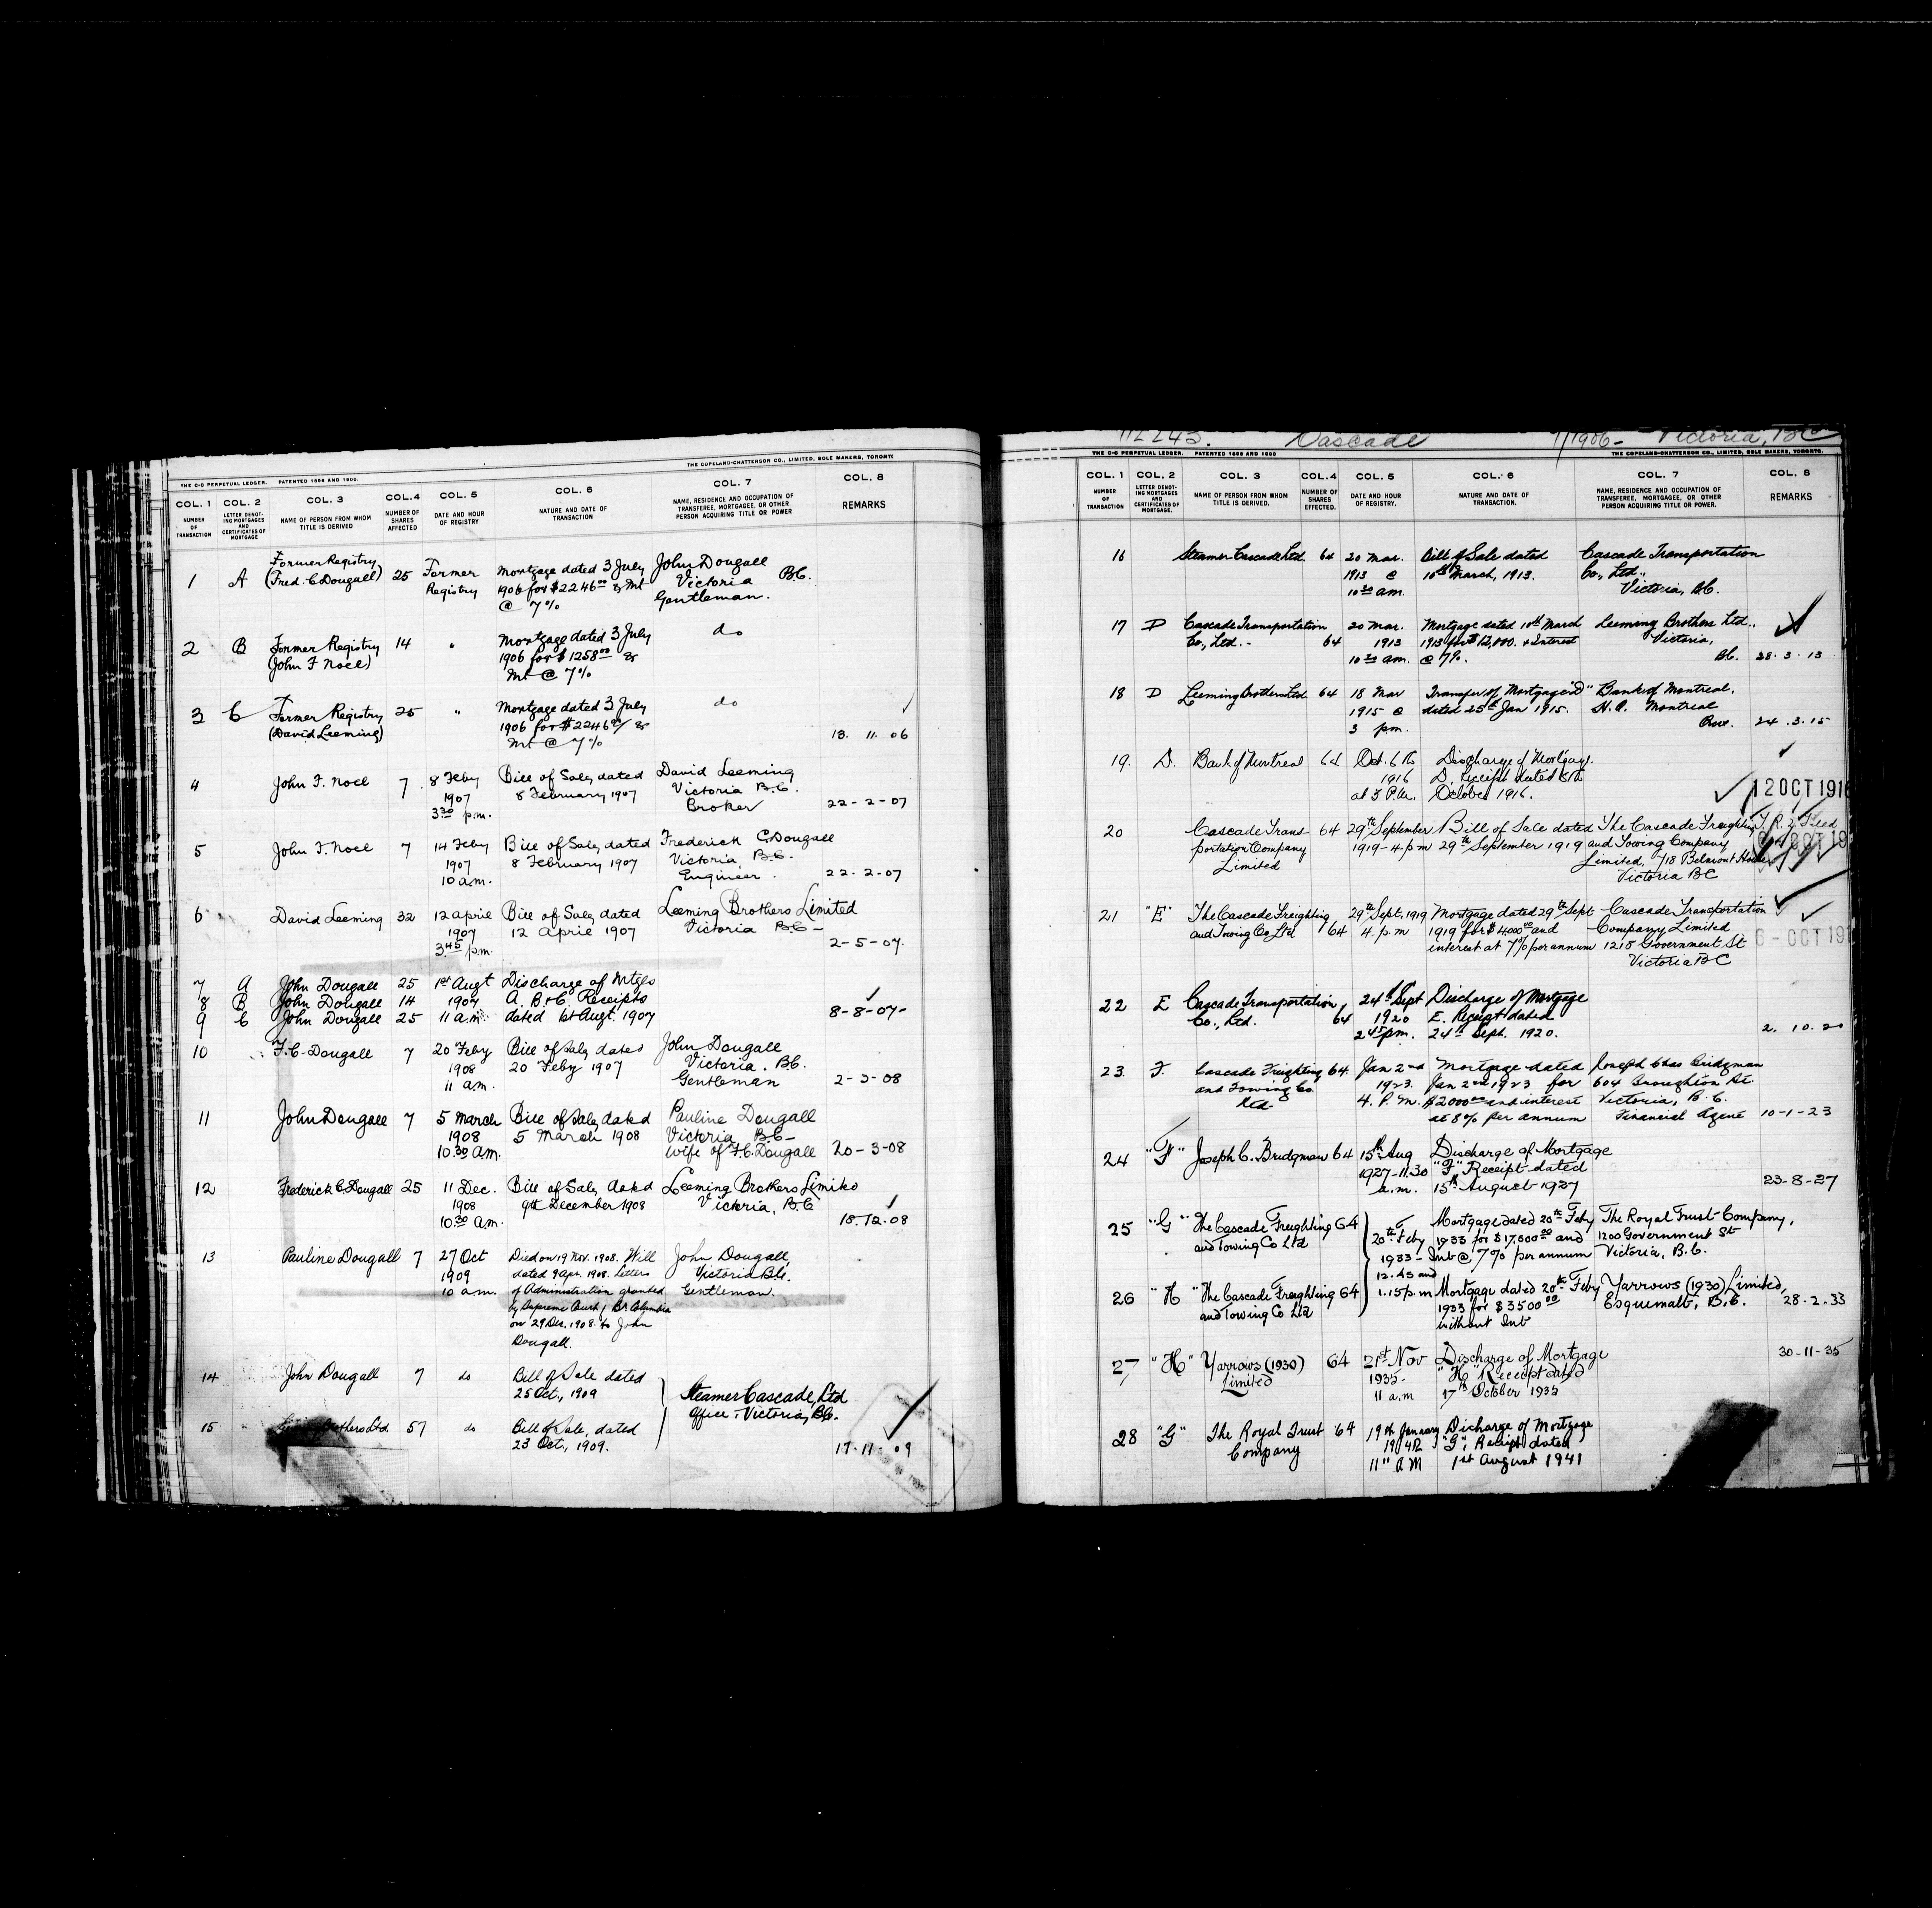 THE COPELAND-CHATTERSON CO., LIMITED, SOLE MAKERS, TORONTO
THE C-C PERPETUAL LEDGER. PATENTED 1896 AND 1900.
COL. 1 COL. 2 COL. 3 COL. 4 COL. 5 COL. 6 COL. 7 COL. 8
NUMBER OF TRANSACTION
LETTER DENOTING MORTGAGES AND CERTIFICATES OF MORTGAGE
NAME OF PERSON FROM WHOM TITLE IS DERIVED
NUMBER OF SHARES AFFECTED
DATE AND HOUR OF REGISTRY
NATURE AND DATE OF TRANSACTION
NAME, RESIDENCE AND OCCUPATION OF TRANSFEREE, MORTGAGEE, OR OTHER PERSON ACQUIRING TITLE OR POWER
REMARKS
Former Registry Mortgage dated 3 July John Dougall
1 A (Fred. C. Dougall) 25 Former 1906 for $2246.00 & Int Victoria B.C.
Registry @ 7% Gentleman.
2 B Former Registry 14 " Mortgage dated 3 July do
(John F Noel) 1906 for $1258.00 &
Int @ 7%
3 C Former Registry 25 " Mortgage dated 3 July do
(David Leeming) 1906 for $2246.00 &
Int @ 7% 13. 11. 06
4 John F. Noel 7 8 Feby Bill of Sale, dated David Leeming
1907 8 February 1907 Victoria B.C.
3.30 p.m. Broker 22-2-07
5 John F. Noel 7 14 Feby Bill of Sale, dated Frederick C. Dougall
1907 8 February 1907 Victoria, B.C.
10 a.m. Engineer. 22.2-07
6 David Leeming 32 12 April Bill of Sale, dated Leeming Brothers Limited
1907 12 April 1907 Victoria B.C-
3.45 p.m. 2-5-07.
7 A John Dougall 25 1st Augt Discharge of Mtges
8 B John Dougall 14 1907 A. B. & C. Receipts
9 C John Dougall 25 11 a.m. dated 1st Augt. 1907 8-8-07-
10 F.C. Dougall 7 20 Feby Bill of Sale, dated John Dougall
1908 20 Feby 1907 Victoria. B.C.
11 am. Gentleman 2-3-08
11 John Dougall 7 5 March Bill of Sale, dated Pauline Dougall
1908 5 March 1908 Victoria, B.C-
10.30 a.m. wife of F.C. Dougall 20-3-08
12 Frederick C. Dougall 25 11 Dec. Bill of Sale, dated Leeming Brothers Limited
1908 9th December 1908 Victoria, B.C
10.30 am. 15.12.08
13 Pauline Dougall 7 27 Oct Died on 19 Nov. 1908. Will John Dougall,
1909 dated 9 Apr. 1908. Letters Victoria B.C.
10 a.m. of Administration granted Gentleman.
by Supreme Court of Br. Columbia
on 29 Dec. 1908 to John
Dougall.
14 John Dougall 7 do Bill of Sale dated
25 Oct., 1909 Steamer Cascade, Ltd
Office: Victoria, B.C.
15 Brothers Ltd. 57 do Bill of Sale, dated
23 Oct., 1909. 17.11.09
Cascade 1/1906- Victoria, BC
THE C-C PERPETUAL LEDGER. PATENTED 1896 AND 1900 THE COPELAND-CHATTERSON CO., LIMITED, SOLE MAKERS, TORONTO.
COL. 1 COL. 2 COL. 3 COL. 4 COL. 5 COL. 6 COL. 7 COL. 8
NUMBER OF TRANSACTION
LETTER DENOTING MORTGAGES AND CERTIFICATES OF MORTGAGE.
NAME OF PERSON FROM WHOM TITLE IS DERIVED.
NUMBER OF SHARES EFFECTED.
DATE AND HOUR OF REGISTRY.
NATURE AND DATE OF TRANSACTION.
NAME, RESIDENCE AND OCCUPATION OF TRANSFEREE, MORTGAGEE, OR OTHER PERSON ACQUIRING TITLE OR POWER.
REMARKS
16 Steamer Cascade Ltd. 64 20 Mar. Bill of Sale dated Cascade Transportation
1913 @ 10th March, 1913. Co., Ltd.,
10.30 am. Victoria, B.C.
17 D Cascade Transportation 20 Mar. Mortgage dated 10th March Leeming Brothers Ltd.,
Co., Ltd.- 64 1913 1913 for $12,000. & Interest Victoria,
10.30 am. @ 7%. B.C. 28.3.13
18 D Leeming Brothers Ltd. 64 18 Mar Transfer of Mortgage "D" Bank of Montreal,
1915 @ dated 25th Jan 1915. H.O. Montreal
3 pm. Que. 24.3.15
19. D. Bank of Montreal 64 Oct. 6th Discharge of Mortgage.
1916 D, receipt dated 6th
at 3 P.M. October 1916. 12 OCT 1916
20 Cascade Trans- 64 29th September Bill of Sale dated The Cascade Freighting
portation Company 1919-4 p m 29th September 1919 and Towing Company
Limited Limited, 718 Belmont House
Victoria BC
21 "E" The Cascade Freighting 29th Sept. 1919 Mortgage dated 29th Sept Cascade Transportation
and Towing Co Ltd 64 4. p. m 1919 for $4000.00 and Company Limited
interest at 7% per annum 1218 Government St 6-OCT 19
Victoria BC
22 E Cascade Transportation 24th Sept Discharge of Mortgage
Co., Ltd. 64 1920 E. Receipt dated
2.45 pm. 24th Sept. 1920. 2. 10. 20
23. F. Cascade Freighting 64. Jan 2nd Mortgage dated Joseph Chas Bridgman
and Towing Co. 1923. Jan 2nd 1923 for 604 Broughton St.
Ltd. 4. P.M. $2000.00 and interest Victoria, B.C.
at 8% per annum Financial Agent 10-1-23
24 "F" Joseph C. Bridgman 64 15th Aug Discharge of Mortgage
1927-11.30 "F" Receipt dated
a.m. 15th August 1927 23-8-27
25 "G" The Cascade Freighting 64 20th Feby Mortgage dated 20th Feby The Royal Trust Company,
and Towing Co Ltd 1933 for $17,500.00 and 1200 Government St
1933- Int @ 7% per annum Victoria, B.C.
12.45 and
26 "H" The Cascade Freighting 64 1.15 p.m Mortgage dated 20th Feby Yarrows (1930) Limited,
and Towing Co Ltd 1933 for $3500.00 Esquimalt, B.C. 28.2.33
without Int
27 "H" Yarrows (1930) 64 21st Nov Discharge of Mortgage 30-11-35
Limited 1935- "H" Receipt dated
11 a.m 17th October 1935
28 "G" The Royal Trust 64 19th January Discharge of Mortgage
Company 1942 "G", Receipt dated
11 A M 1st August 1941